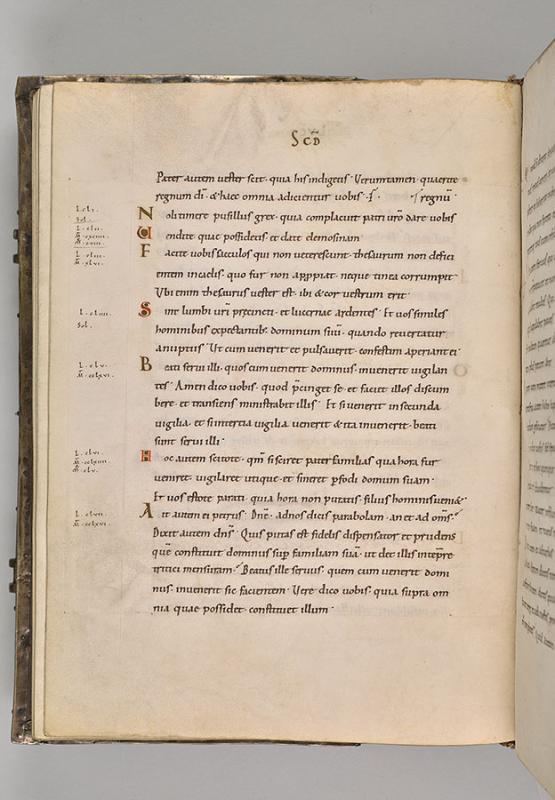 SCD
Pater autem uester scit · quia his indigetis · Verumtamen quaerite
regnum di · & haec omnia adicientur uobis ·
regnū
Nolite timere pusillus grex · quia complacuit patri uro dare uobis
Uendite quae possidetis et date elemosinam
Facite uobis sacculos qui non ueterescunt · thesaurum non defici
entem in caelis · quo fur non appropiat · neque tinea corrumpit ·
Vbi enim thesaurus uester est · ibi & cor uestrum erit ·
Sint lumbi uri precincti · et lucernae ardentes · Et uos similes
hominibus expectantibus dominum suū · quando reuertatur
a nuptiis · Ut cum uenerit et pulsauerit · confestim aperiant ei ·
Beati serui illi · quos cum uenerit dominus · inuenerit uigilan
tes · Amen dico uobis · quod precinget se · et faciet illos discum
bere · et transiens ministrabit illis · Et si uenerit in secunda
uigilia · et si in tertia uigilia uenerit & ita inuenerit · beati
sunt serui illi ·
Hoc autem scitote · qm̄ si sciret pater familias qua hora fur
ueniret · uigilaret utique · et sineret · domum suam ·
Et uos estote parati · quia hora non putatis · filius hominis ueni&
Ait autem ei petrus · Dn̄e · ad nos dicis parabolam · an et ad om̄s ·
Dixit autem dn̄s · Quis putas est fidelis dispensator et prudens
quē constituit dominus sup familiam suā · ut det illis in tēpre
tritici mensuram · Beatus ille seruus · quem cum uenerit domi
nus · inuenerit sic facientem · Vere dico uobis · quia supra om
nia quae possidet · constituet illum ·